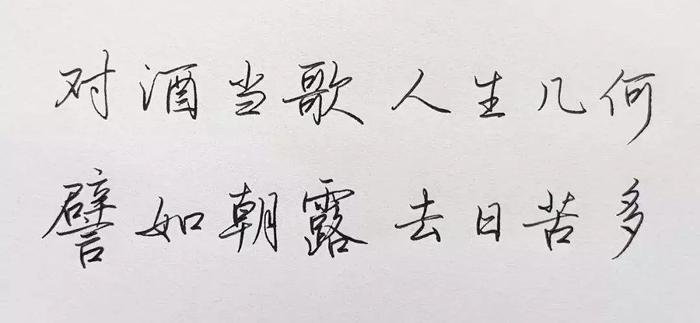 对酒当歌 人生几何
譬如朝露 去日苦多